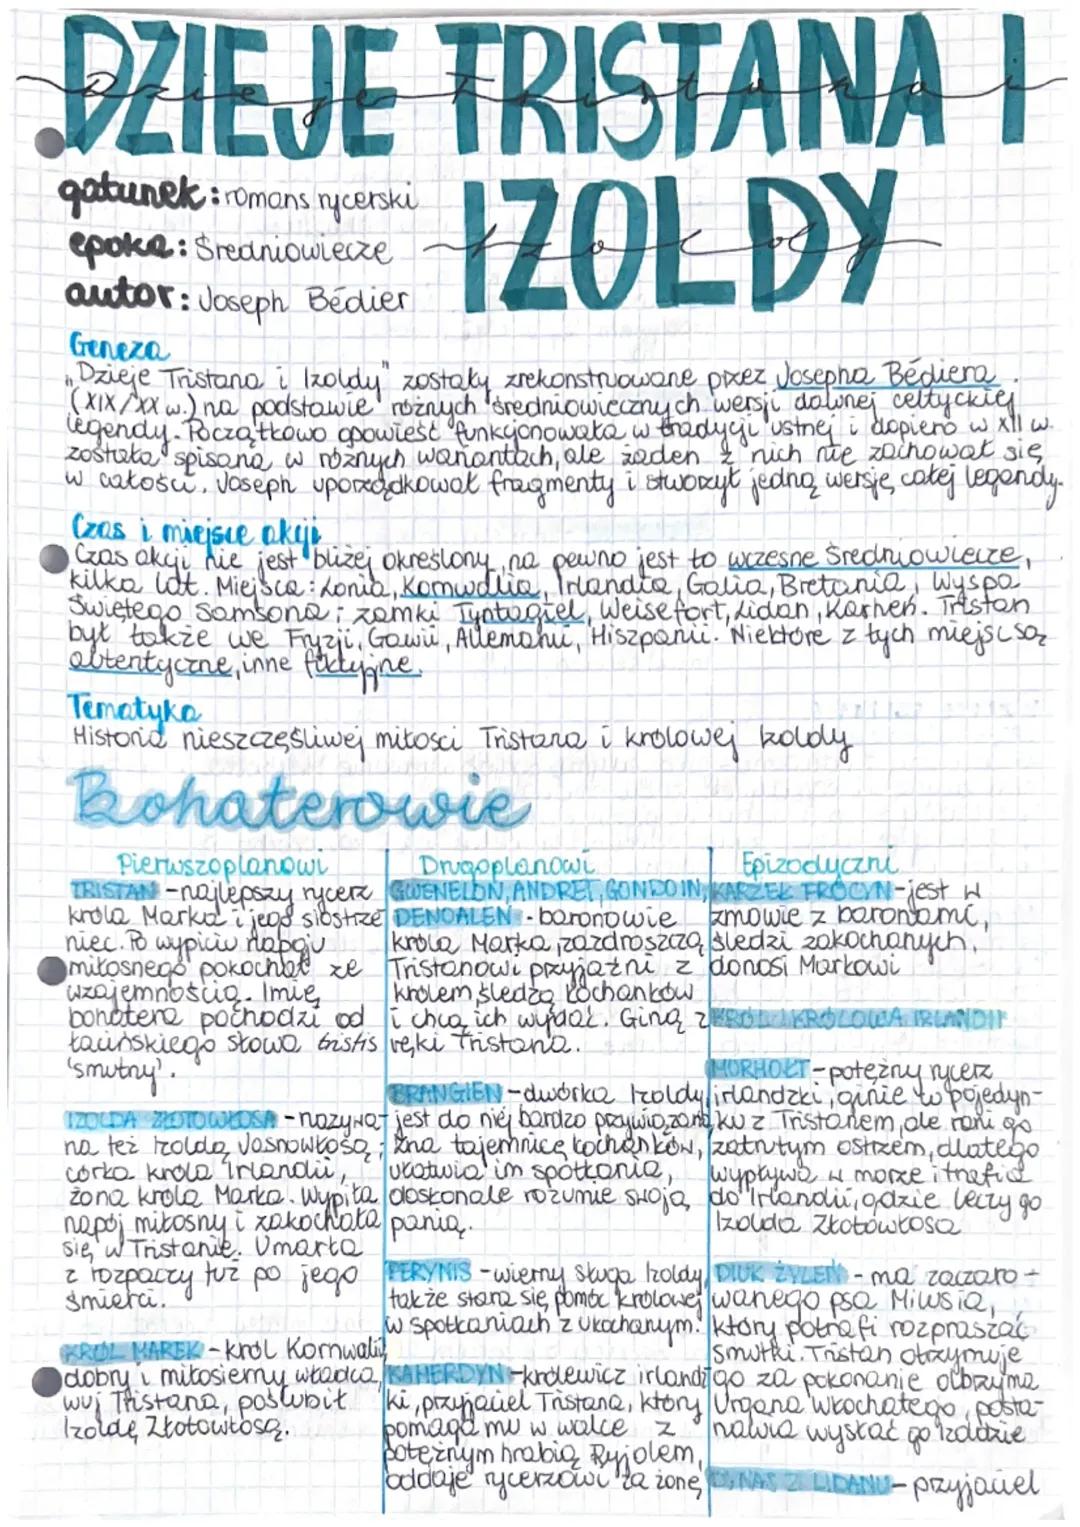 DZIEJE TRISTANA I
Dzieje Tristana i
IZOLDY
Izoldy
gatunek: romans rycerski
epoka: Średniowiecze
autor: Joseph Bédier
Geneza
„Dzieje Tristana i Izoldy" zostały zrekonstruowane przez Josepha Bédiera
(XIX/XX w.) na podstawie różnych średniowiecznych wersji dawnej celtyckiej
legendy. Początkowo opowieść funkcjonowała w tradycji ustnej i dopiero w XII w.
została spisana w różnych wariantach, ale żaden z nich nie zachował się
w całości. Joseph uporządkował fragmenty i stworzył jedną wersję całej legendy.
Czas i miejsce akcji
Czas akcji nie jest bliżej określony, na pewno jest to wczesne Średniowiecze,
kilka lat. Miejsca: Lonia, Kornwalia, Irlandia, Galia, Bretania, Wyspa
Świętego Samsona; zamki Tyntagiel, Weisefort, Lidan, Karhen. Tristan
był także we Fryzji, Gawii, Allemanii, Hiszpanii. Niektóre z tych miejsc są
autentyczne, inne fikcyjne.
Tematyka
Historia nieszczęśliwej miłości Tristana i królowej Izoldy
Bohaterowie
Pierwszoplanowi
TRISTAN - najlepszy rycerz
króla Marka i jego siostrze
niec. Po wypiciu napoju
miłosnego pokochał ze
wzajemnością. Imię
bohatera pochodzi od
łacińskiego słowa tristis
'smutny'.
IZOLDA ZŁOTOWŁOSA - nazywa-
na też Izoldą Jasnowłosą;
córka króla Irlandii,
żona króla Marka. Wypiła
napój miłosny i zakochała
się w Tristanie. Umarła
z rozpaczy tuż po jego
śmierci.
KRÓL MAREK - król Kornwalii,
dobry i miłosierny władca,
wuj Tristana, poślubił
Izoldę Złotowłosą.
Drugoplanowi
GWENELON, ANDRET, GONDOIN,
DENOALEN - baronowie
króla Marka, zazdroszczą
Tristanowi przyjaźni z
królem, śledzą kochanków
i chcą ich wydać. Giną z
ręki Tristana.
BRANGIEN - dwórka Izoldy,
jest do niej bardzo przywiązana,
zna tajemnicę kochanków,
ułatwia im spotkania,
doskonale rozumie swoją
panią.
PERYNIS - wierny sługa Izoldy,
także stara się pomóc królowej
w spotkaniach z ukochanym.
KAHERDYN - królewicz irlandz
ki, przyjaciel Tristana, który
pomaga mu w walce z
potężnym hrabią Ryjolem,
oddaje rycerzowi za żonę
Epizodyczni
KARZEŁ FROCYN - jest w
zmowie z baronami,
śledzi zakochanych,
donosi Markowi
KRÓL I KRÓLOWA IRLANDII
MORHOŁT - potężny rycerz
irlandzki, ginie w pojedyn-
ku z Tristanem, ale rani go
zatrutym ostrzem, dlatego
wypływa w morze i trafia
do Irlandii, gdzie leczy go
Izolda Złotowłosa
DIUK ŻYLEŃ - ma zaczaro-
wanego psa Milusia,
który potrafi rozpraszać
smutki. Tristan otrzymuje
go za pokonanie olbrzyma
Urgana Włochatego, posta-
nawia wysłać go Izoldzie
DINAS Z LIDANU - przyjaciel